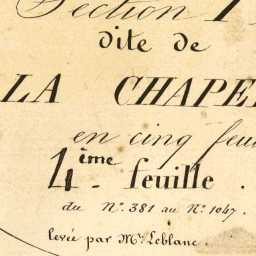 Section
dite de
LA CHAPE
en cinq feu
4ème feuille.
du N° 381 au N° 1047.
levée par Mr. Leblanc.